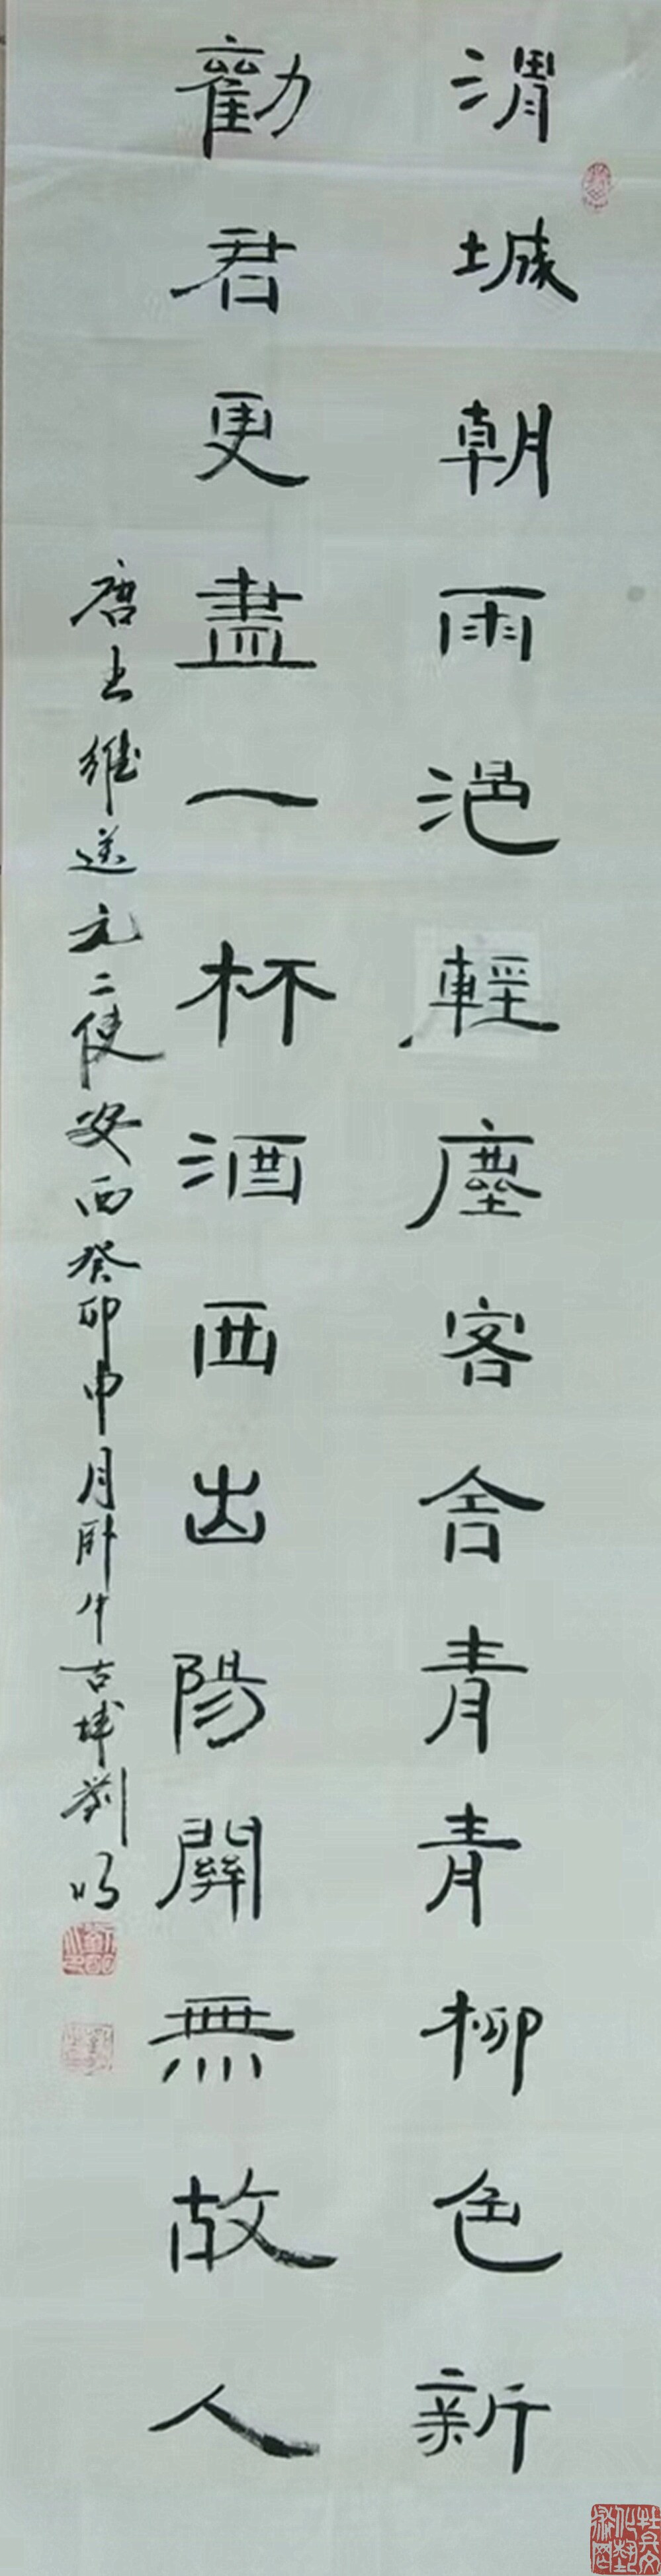 渭城朝雨浥輕塵客舍青青柳色新
勸君更盡一杯酒西出陽關無故人
唐王維送元二使安西癸卯申月卧牛古城劉明